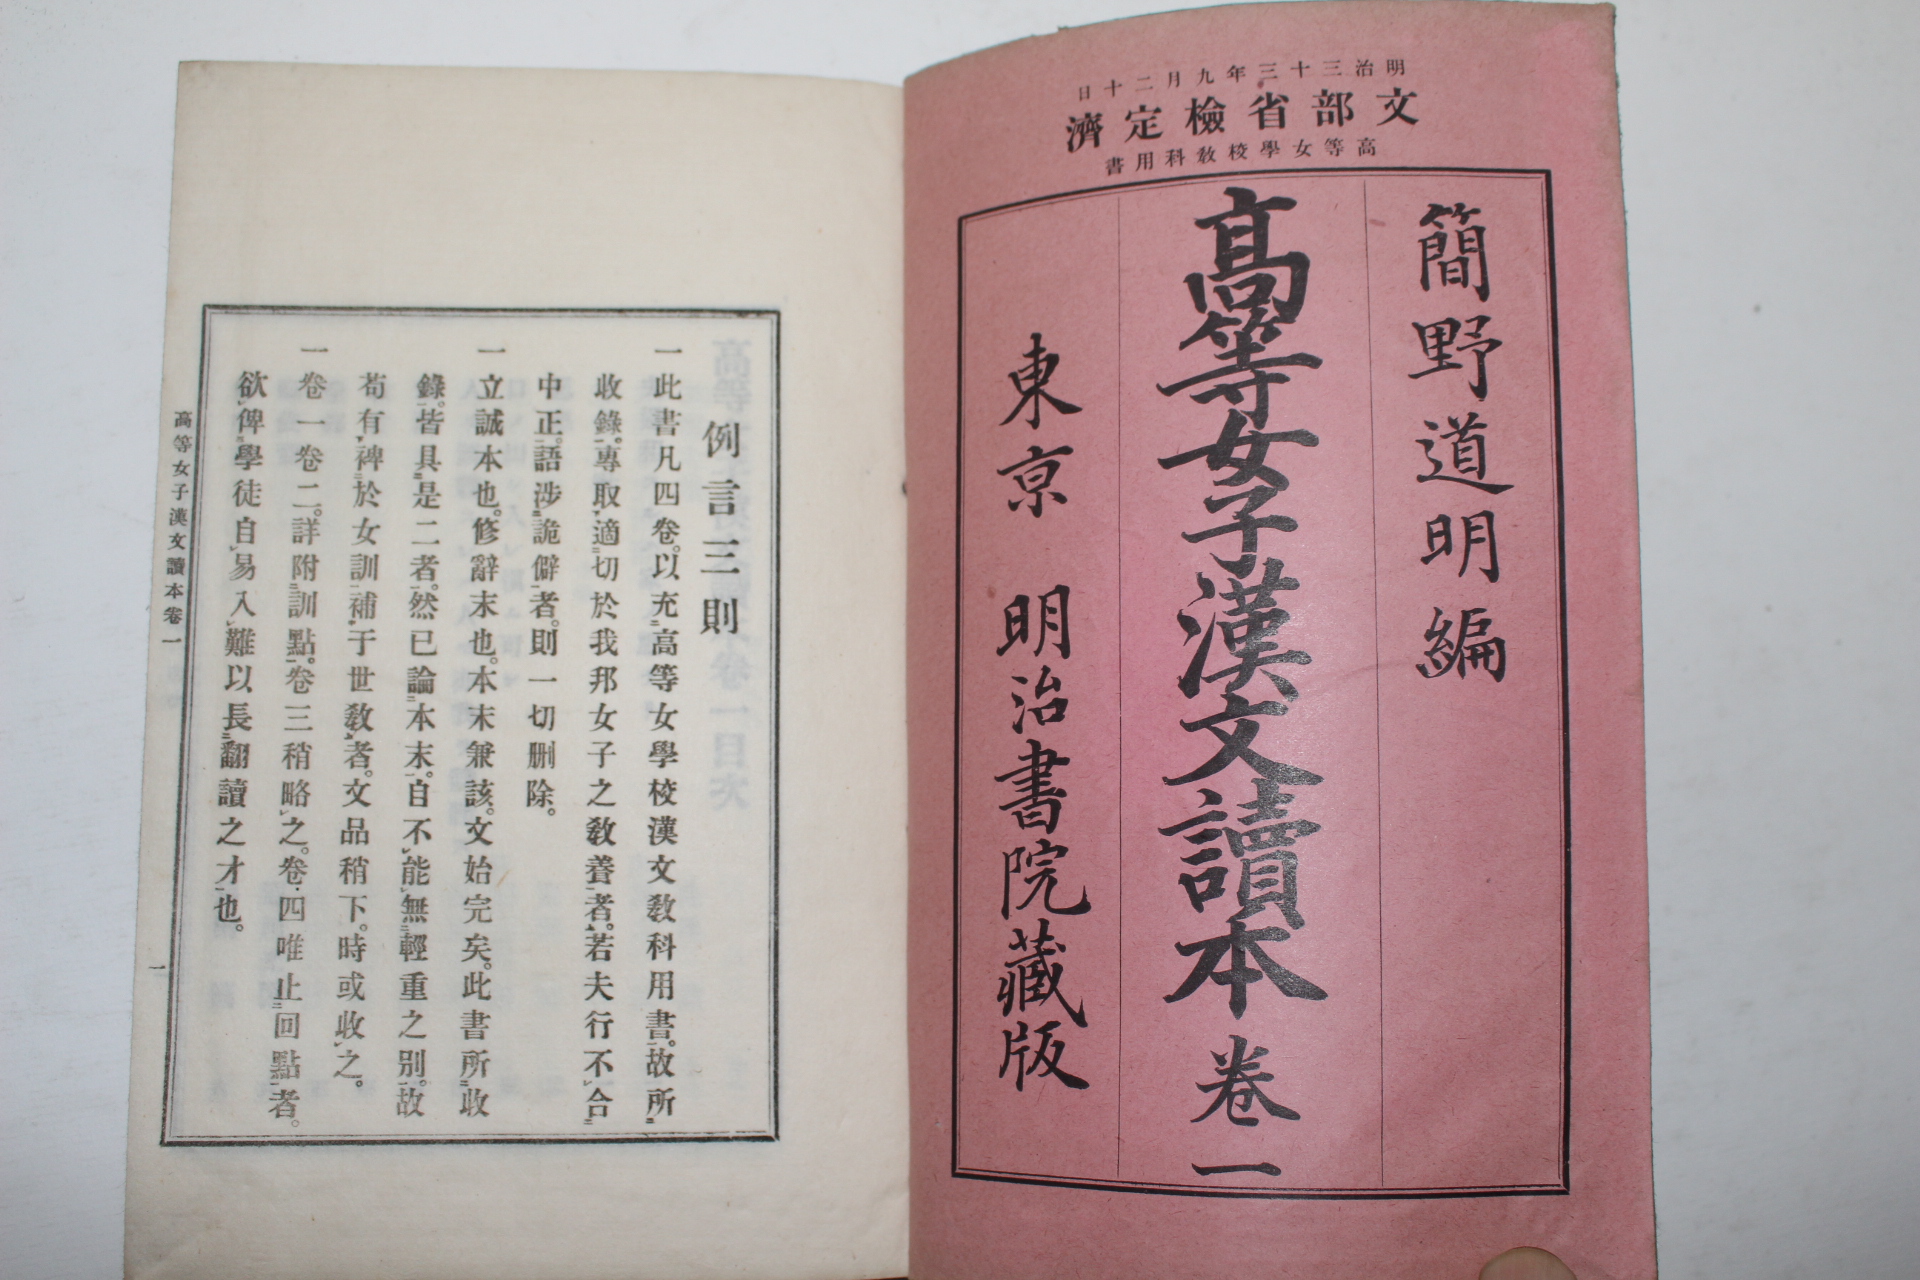 明治三十三年九月二十日
文部省檢定濟
高等女學校敎科用書
簡野道明編
高等女子漢文讀本卷一
東京 明治書院藏版
例言三則
一此書凡四卷。以充高等女學校漢文敎科用書。故所
收錄。專取適切於我邦女子之敎養者。若夫行不合
中正。語涉詭僻者。則一切删除。
一立誠本也。修辭末也。本末兼該。文始完矣。此書所收
錄。皆具是二者。然已論本末。自不能無輕重之別。故
苟有裨於女訓補于世敎者。文品稍下。時或收之。
一卷一卷二。詳附訓點。卷三稍略之。卷四唯止回點者。
欲俾學徒自易入難以長翻讀之才也。
高等女子漢文讀本卷一
一